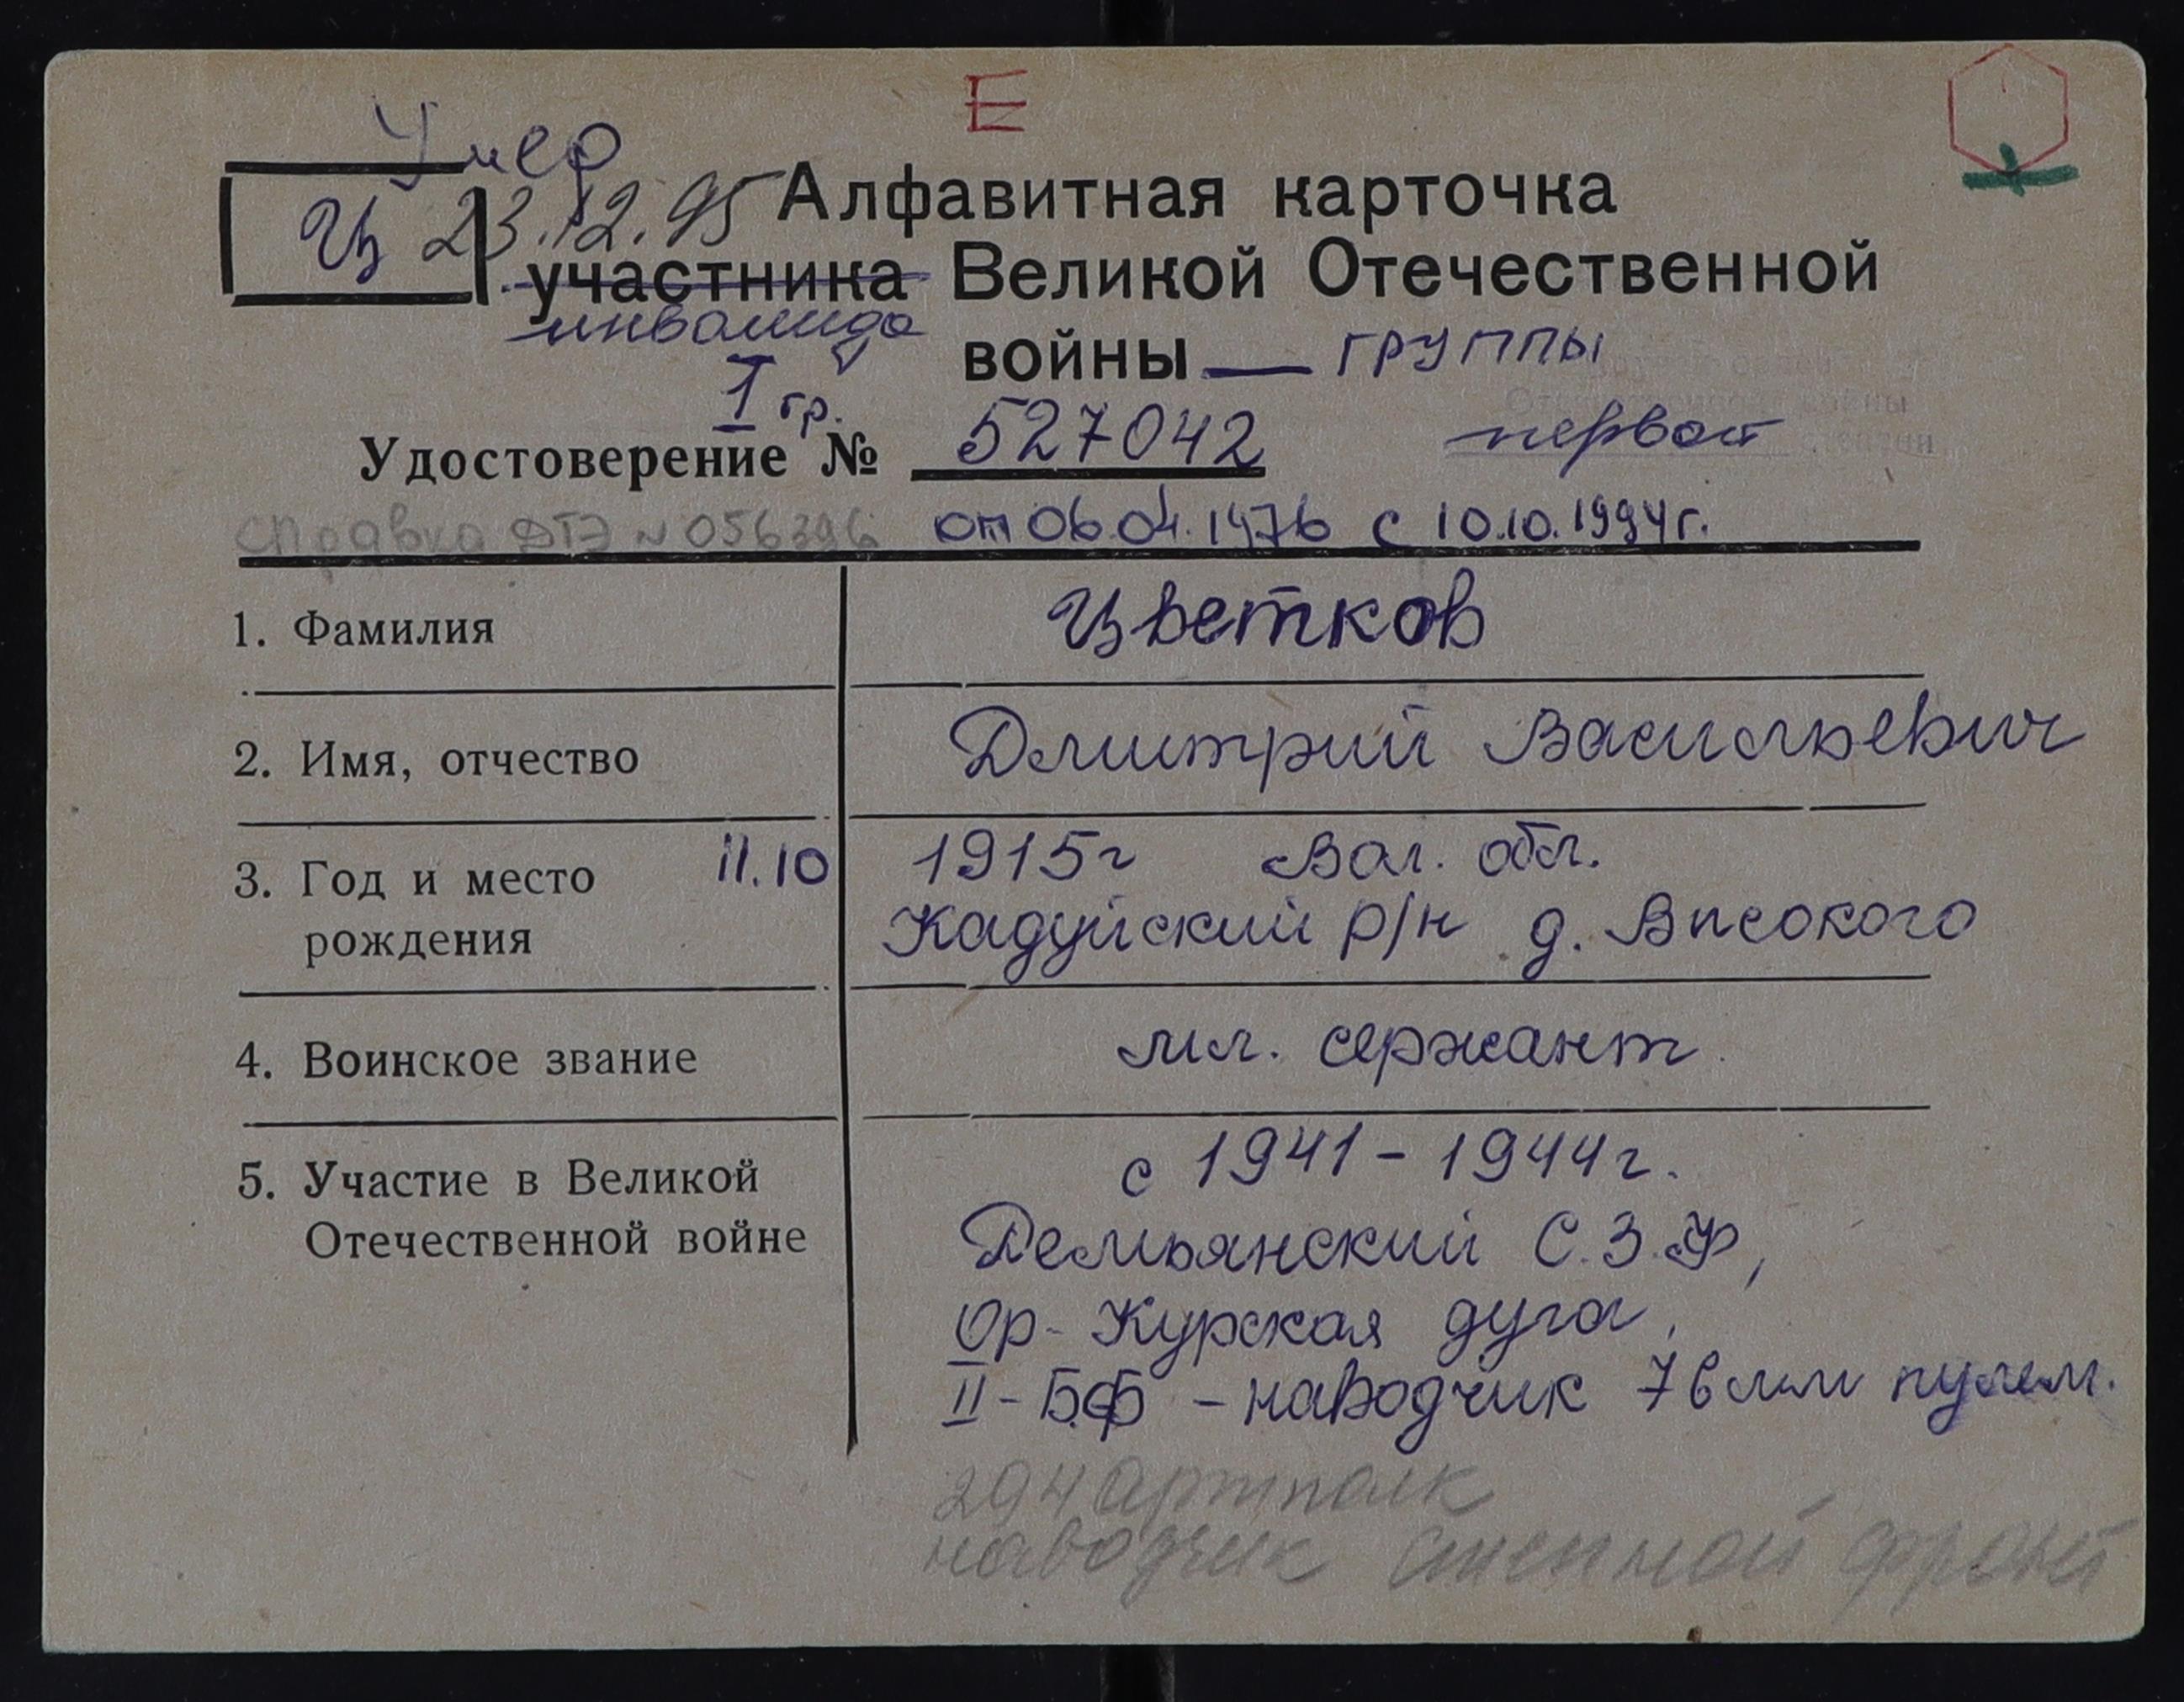 Е
Умер
Ц 23.12.95 Алфавитная карточка
участника Великой Отечественной
инвалида войны — группы
I гр. первой
Удостоверение № 527042
Справка ВТЭ N 056396 от 06.04.1976 с 10.10.1994г.
1. Фамилия Цветков
2. Имя, отчество Дмитрий Васильевич
3. Год и место 11.10 1915г Вол. обл.
рождения Кадуйский р/н д. Высокого
4. Воинское звание мл. сержант
5. Участие в Великой с 1941 - 1944г.
Отечественной войне Демьянский С.З.Ф,
Ор- Курская дуга,
II - Б.Ф - наводчик 76 мм пулем.
294 артполк
наводчик степной фронт